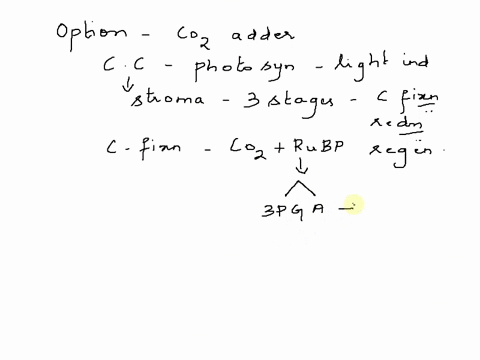 Option - CO2 adder
C.C - photosyn - light ind
stroma - 3 stages - C fixn
redn
C-fixn - CO2 + RuBP regen.
3PGA -